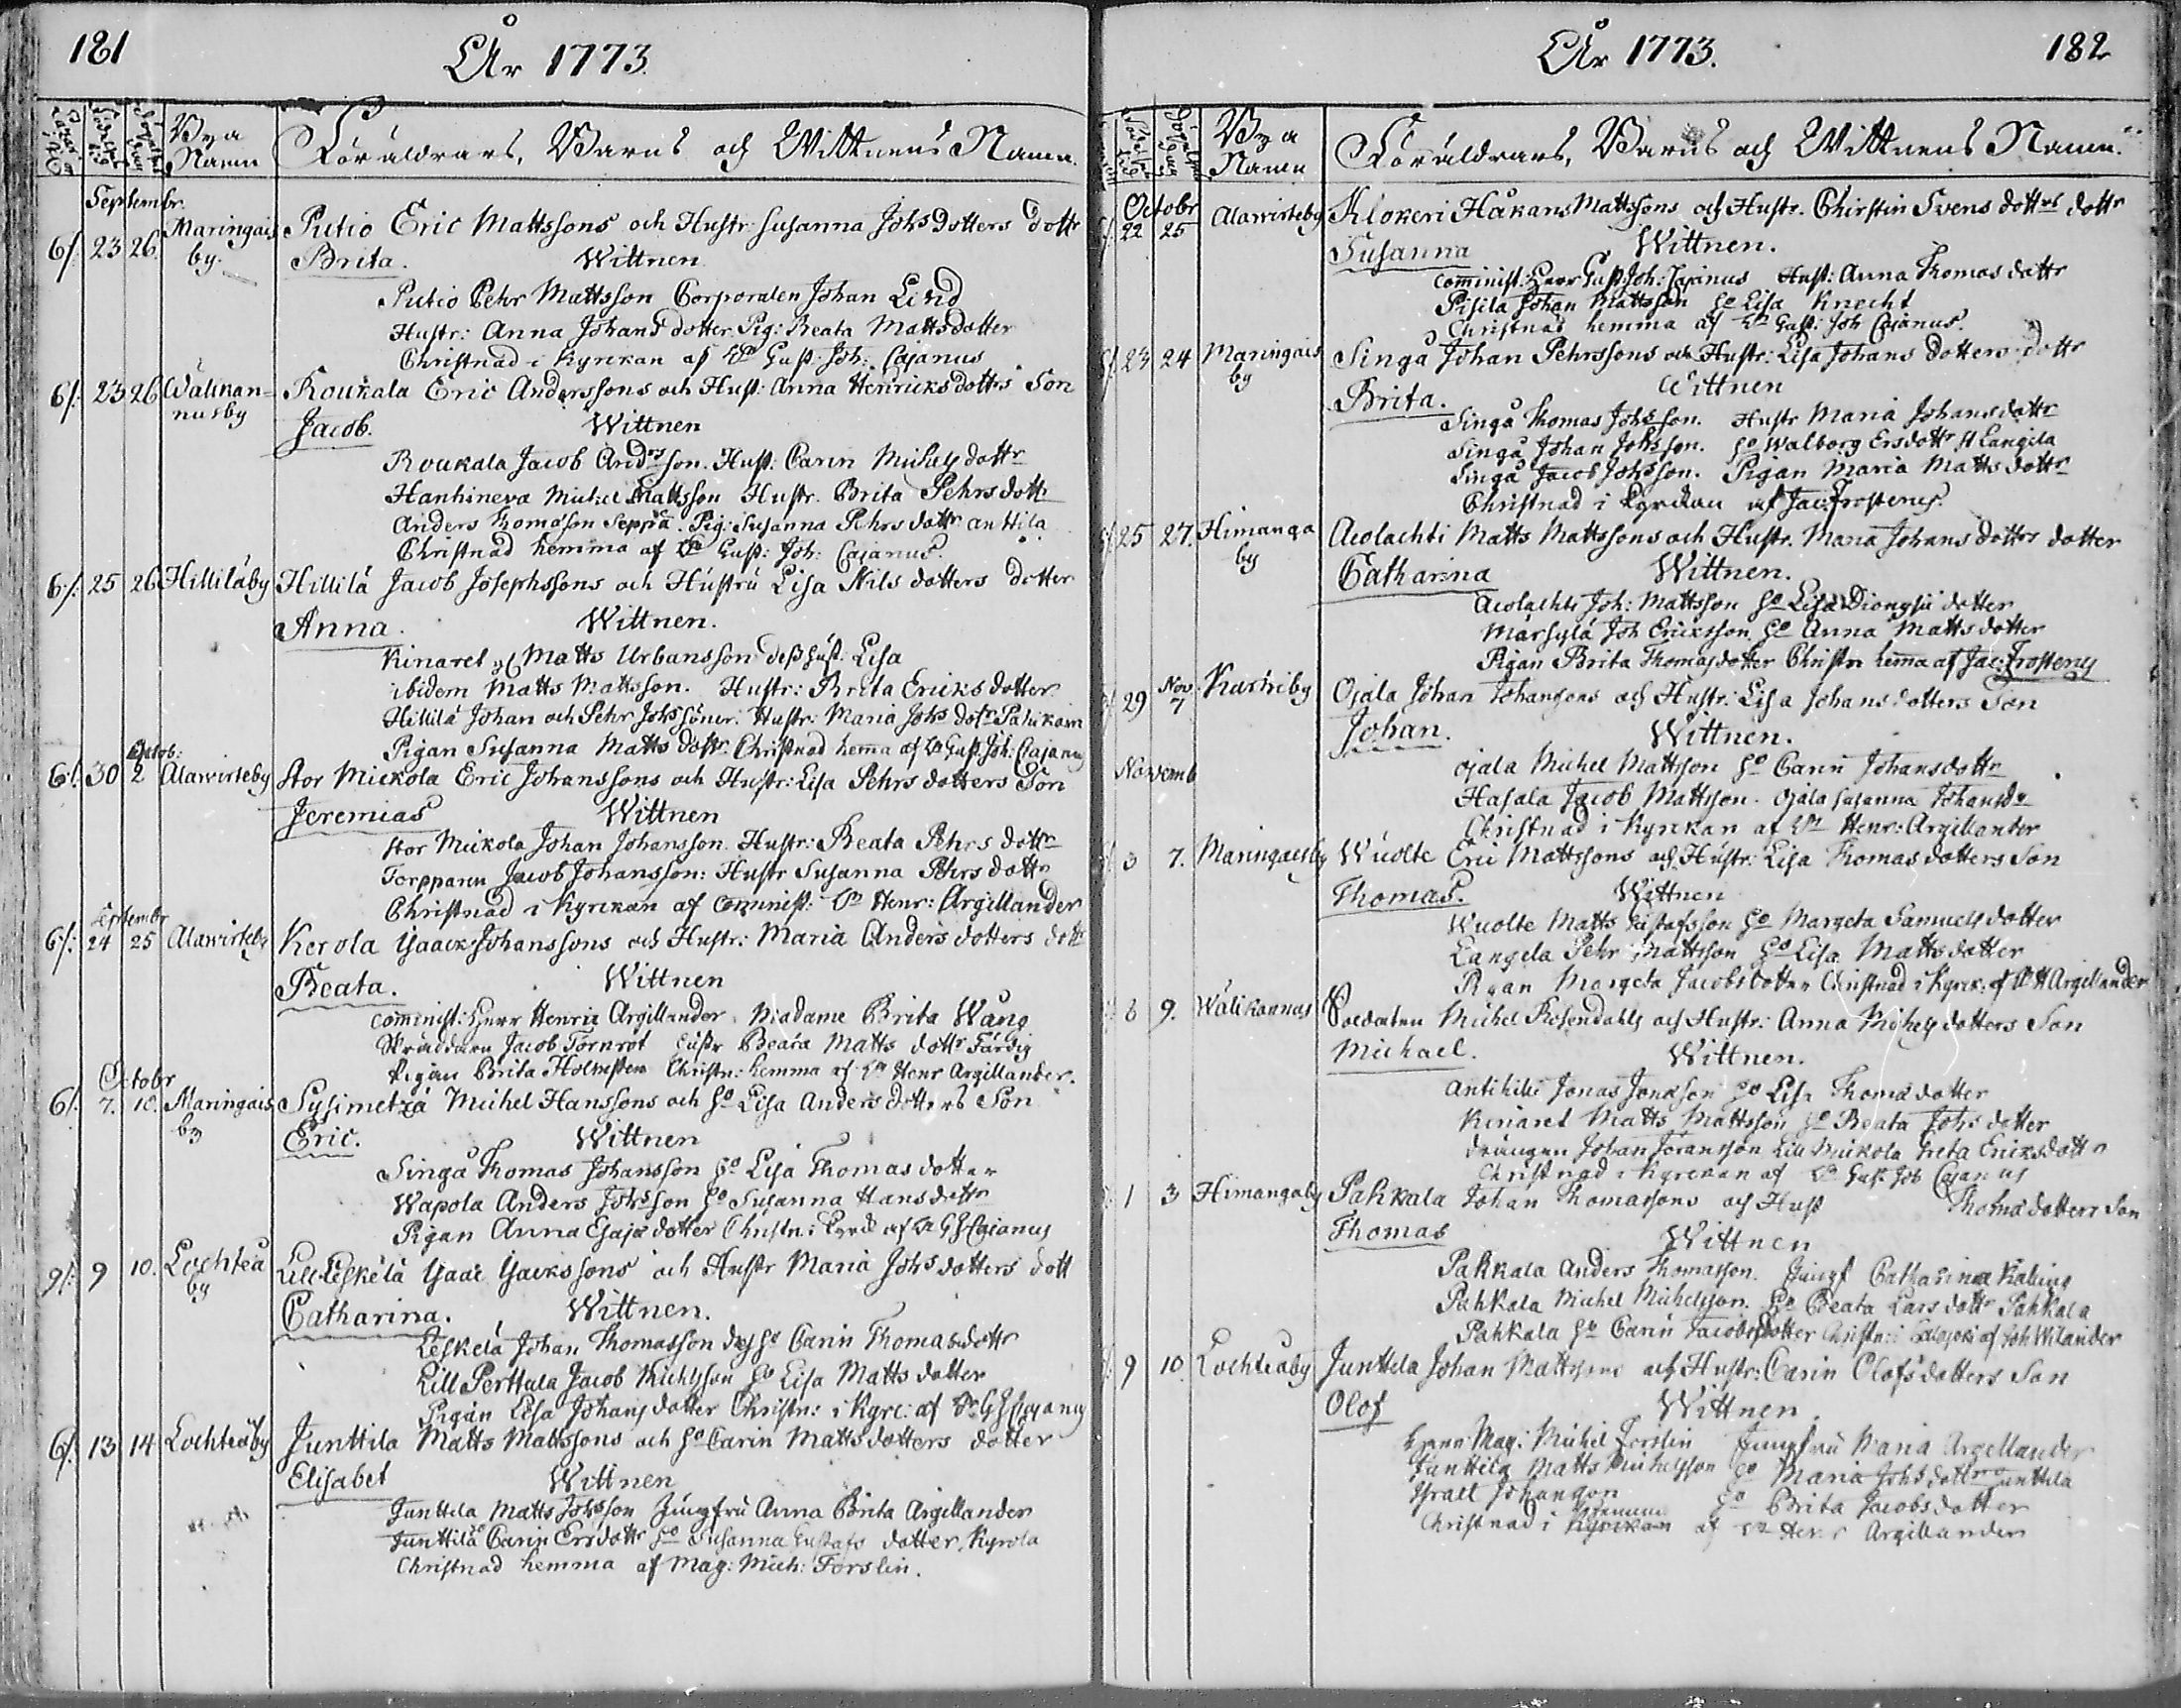 181
År 1773.
Bya Namn
Föräldrars, Barns och Wittnens Namn.
Septembr.
6/. 23 26. Maringais by. Putio Eric Mattssons och Hustr. Susanna Johs Dotters dottr
Brita. Wittnen
Putio Pehr Mattsson Corporalen Johan Lind
Hustr: Anna Johans dotter Pig: Beata Mattsdotter
Christnad i Kyrckan af Hr Gust: Joh: Cajanus
6/. 23 26 Wälikan=nusby Roukala Eric Anderssons och Hust: Anna Henricksdotters Son
Jacob. Wittnen
Roukala Jacob Andersson. Hust: Carin Michels dottr
Hanhineva Michel Mattsson Hustr. Brita Pehrsdottr
Anders Thomasson Seppä. Pig: Susanna Pehrs dottr Anttila
Christnad hemma af Hr Gust: Joh: Cajanus.
6/. 25 26 Hilliläby Hillilä Jacob Josephssons och Hustru Lisa Nils dotters dotter
Anna. Wittnen.
Kinaret Matts Urbansson dess hust. Lisa
ibidem Matts Mattsson. Hustr: Brita Ericks dotter
Hillilä Johan och Pehr Johssöner. Hustr: Maria Johs dotr Pahikain
Pigan Susanna Matts dottr Christnad hema af Hr Gust. Joh: Cajanus
Octob:
6/. 30 2 Alawirteby Stor Mickola Eric Johanssons och Hustr: Lisa Pehrs dotters Son
Jeremias Wittnen
Stor Mickola Johan Johansson. Hustr: Beata Pehrs dottr
Torpparn Jacob Johansson: Hustr Susanna Pehrs dottr
Christnad i Kyrckan af Comminist: Hr Henr: Argillander
Septembr
6/. 24 25 Alawirteby Kerola Isaack Johanssons och Hustr: Maria Anders dotters dottr
Beata. Wittnen
Comminist: Herr Henric Argillander. Madame Brita Wang
Skräddaren Jacob Törnrot hustr Beata Matts dottr Färdig
Pigan Brita Holmsten Christn: hemma af Hr Henr Argillander.
Octobr
6/. 7. 10. Maringais by Sysimetzä Michel Hanssons och Ho Lisa Anders dotters Son
Eric. Wittnen
Singa Thomas Johansson Ho Lisa Thomas dotter
Wapola Anders Johsson Ho Susanna Hans dottr
Pigan Anna Esajæ dotter Christn: i Kyrck af Hr GJCajanus
9/. 9 10. Lochteå by Lill Leskelä Isaac Isacks sons och Hustr Maria Johs dotters dott
Catharina. Wittnen.
Leskelä Johan Thomasson dess Ho Carin Thomasdottr
Lill Perttula Jacob Michelsson Ho Lisa Matts dotter
Pigan Lisa Johans dotter Christn: i Kyrc: af Hr GJCajanus
6/. 13 14 Lochteåby Junttila Matts Mattssons och Ho Carin Matts dotters dotter
Elisabet Wittnen
Junttila Matts Johsson Jungfru Anna Brita Argillander
Junttila Carin Ersdottr Ho Susanna Gustafs dotter, Kyrola
Christnad hemma af Mag: Mich: Forslin.
182
År 1773.
Bya Namn
Föräldrars, Barns och Wittnens Namn.
Octobr
22 25 Alawirteby Klokeri Håkans Mattssons och Hustr. Chirstin Svens dottrs dottr
Susanna Wittnen.
Comminist: Herr Gust: Joh: Cajanus Hust: Anna Thomas dottr
Pisila Johan Mattsson Ho Lisa Knecht
Christnad hemma af Hr Gust: Joh Cajanus.
23 24 Maringais by Singa Johan Pehrssons och Hustr: Lisa Johans dotters dottr
Brita. Wittnen
Singa Thomas Johsson. Hustr Maria Johansdottr
Singa Johan Johsson. Ho Walborg Ersdottr Langila
Singa Jacob Johsson. Pigan Maria Matts dottr
Christnad i Kyrckan af Jac: Frosterus
25 27. Himanga by Aolachti Matts Mattssons och Hustr. Maria Johans dottrs dotter
Catharina Wittnen.
Aolachti Joh: Mattsson Ho Lisa Dionysii dotter
Märsylä Joh Ericksson Ho Anna Matts dotter
Pigan Brita Thomasdotter Christn hema af Jac: Frosterus
29 Nov. 7 Ojala Johan Johansons och Hustr: Lisa Johans dotters Son
Johan. Wittnen.
Ojala Michel Mattsson Ho Carin Johansdottr
Hasala Jacob Mattsson. Ojala Susanna Johansdr
Christnad i Kyrckan af Hr Henr: Argillander
Novemb
3 7. Maringaisby Wuolte Eric Mattssons och Hustr: Lisa Thomas dotters Son
Thomas. Wittnen
Wuolte Matts Gustafsson Ho Margeta Samuels dotter
Langela Pehr Mattsson Ho Lisa Matts dotter
Pigan Margeta Jacobs dotter Christnad i Kyrck: af Hr H Argillander
8 9. Wälikannus Soldaten Michel Rosendahls och Hustr: Anna Michels dotters Son
Michael. Wittnen.
Jonas Jonasson Ho Lisa Thomæ dotter
Kinaret Matts Mattsson Ho Beata Johs dotter
drängen Johan Johansson Lill Mickola Greta Ericksdottr
Christnad i Kyrckan af Hr Gust. Joh Cajanus
1 3 Himangaby Pahkala Johan Thomassons och Hust Thomædotters Son
Thomas Wittnen
Pahkala Anders Thomasson. Jungf Catharina
Pahkala Michel Michelsson. Ho Beata Lars dottr Pahkala
Pahkala Ho Carin Jacobsdotter Christn: i af Joh Wilander
9 10 Lochteåby Junttila Johan Mattssons och Hustr: Carin Olofs dotters Son
Olof Wittnen
Herr Mag: Michel Forslin Jungfru Maria Argillander
Junttila Matts Michelsson Ho Maria Johs dottr Junttila
Israel Johanson Ho Brita Jacobsdotter
Christnad i Kyrckan hemma af Hr Henr Argillander